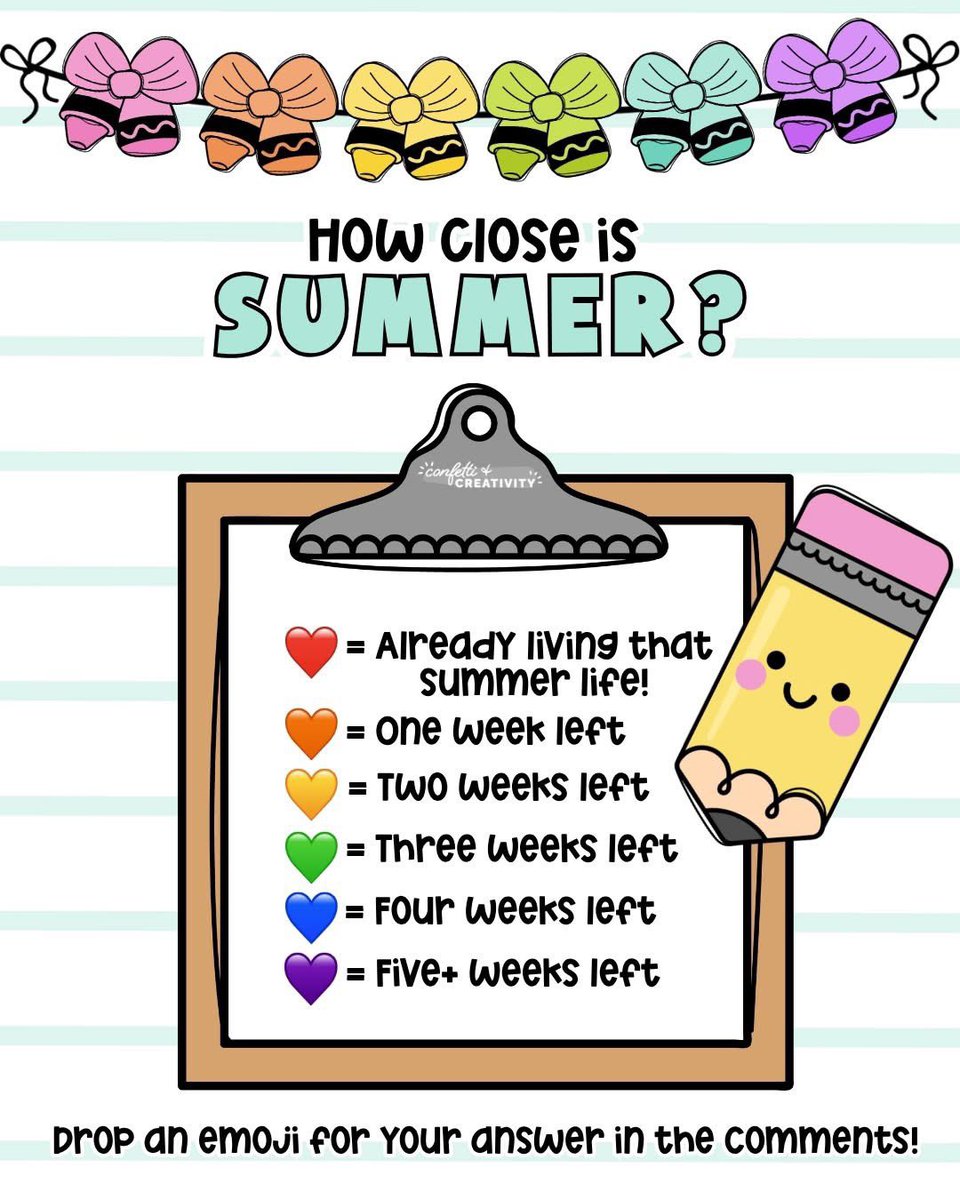 How close is
SUMMER?
confetti &
CREATIVITY
❤️ = Already living that
summer life!
🧡 = One week left
💛 = Two weeks left
💚 = Three weeks left
💙 = Four weeks left
💜 = Five+ weeks left
Drop an emoji for your answer in the comments!